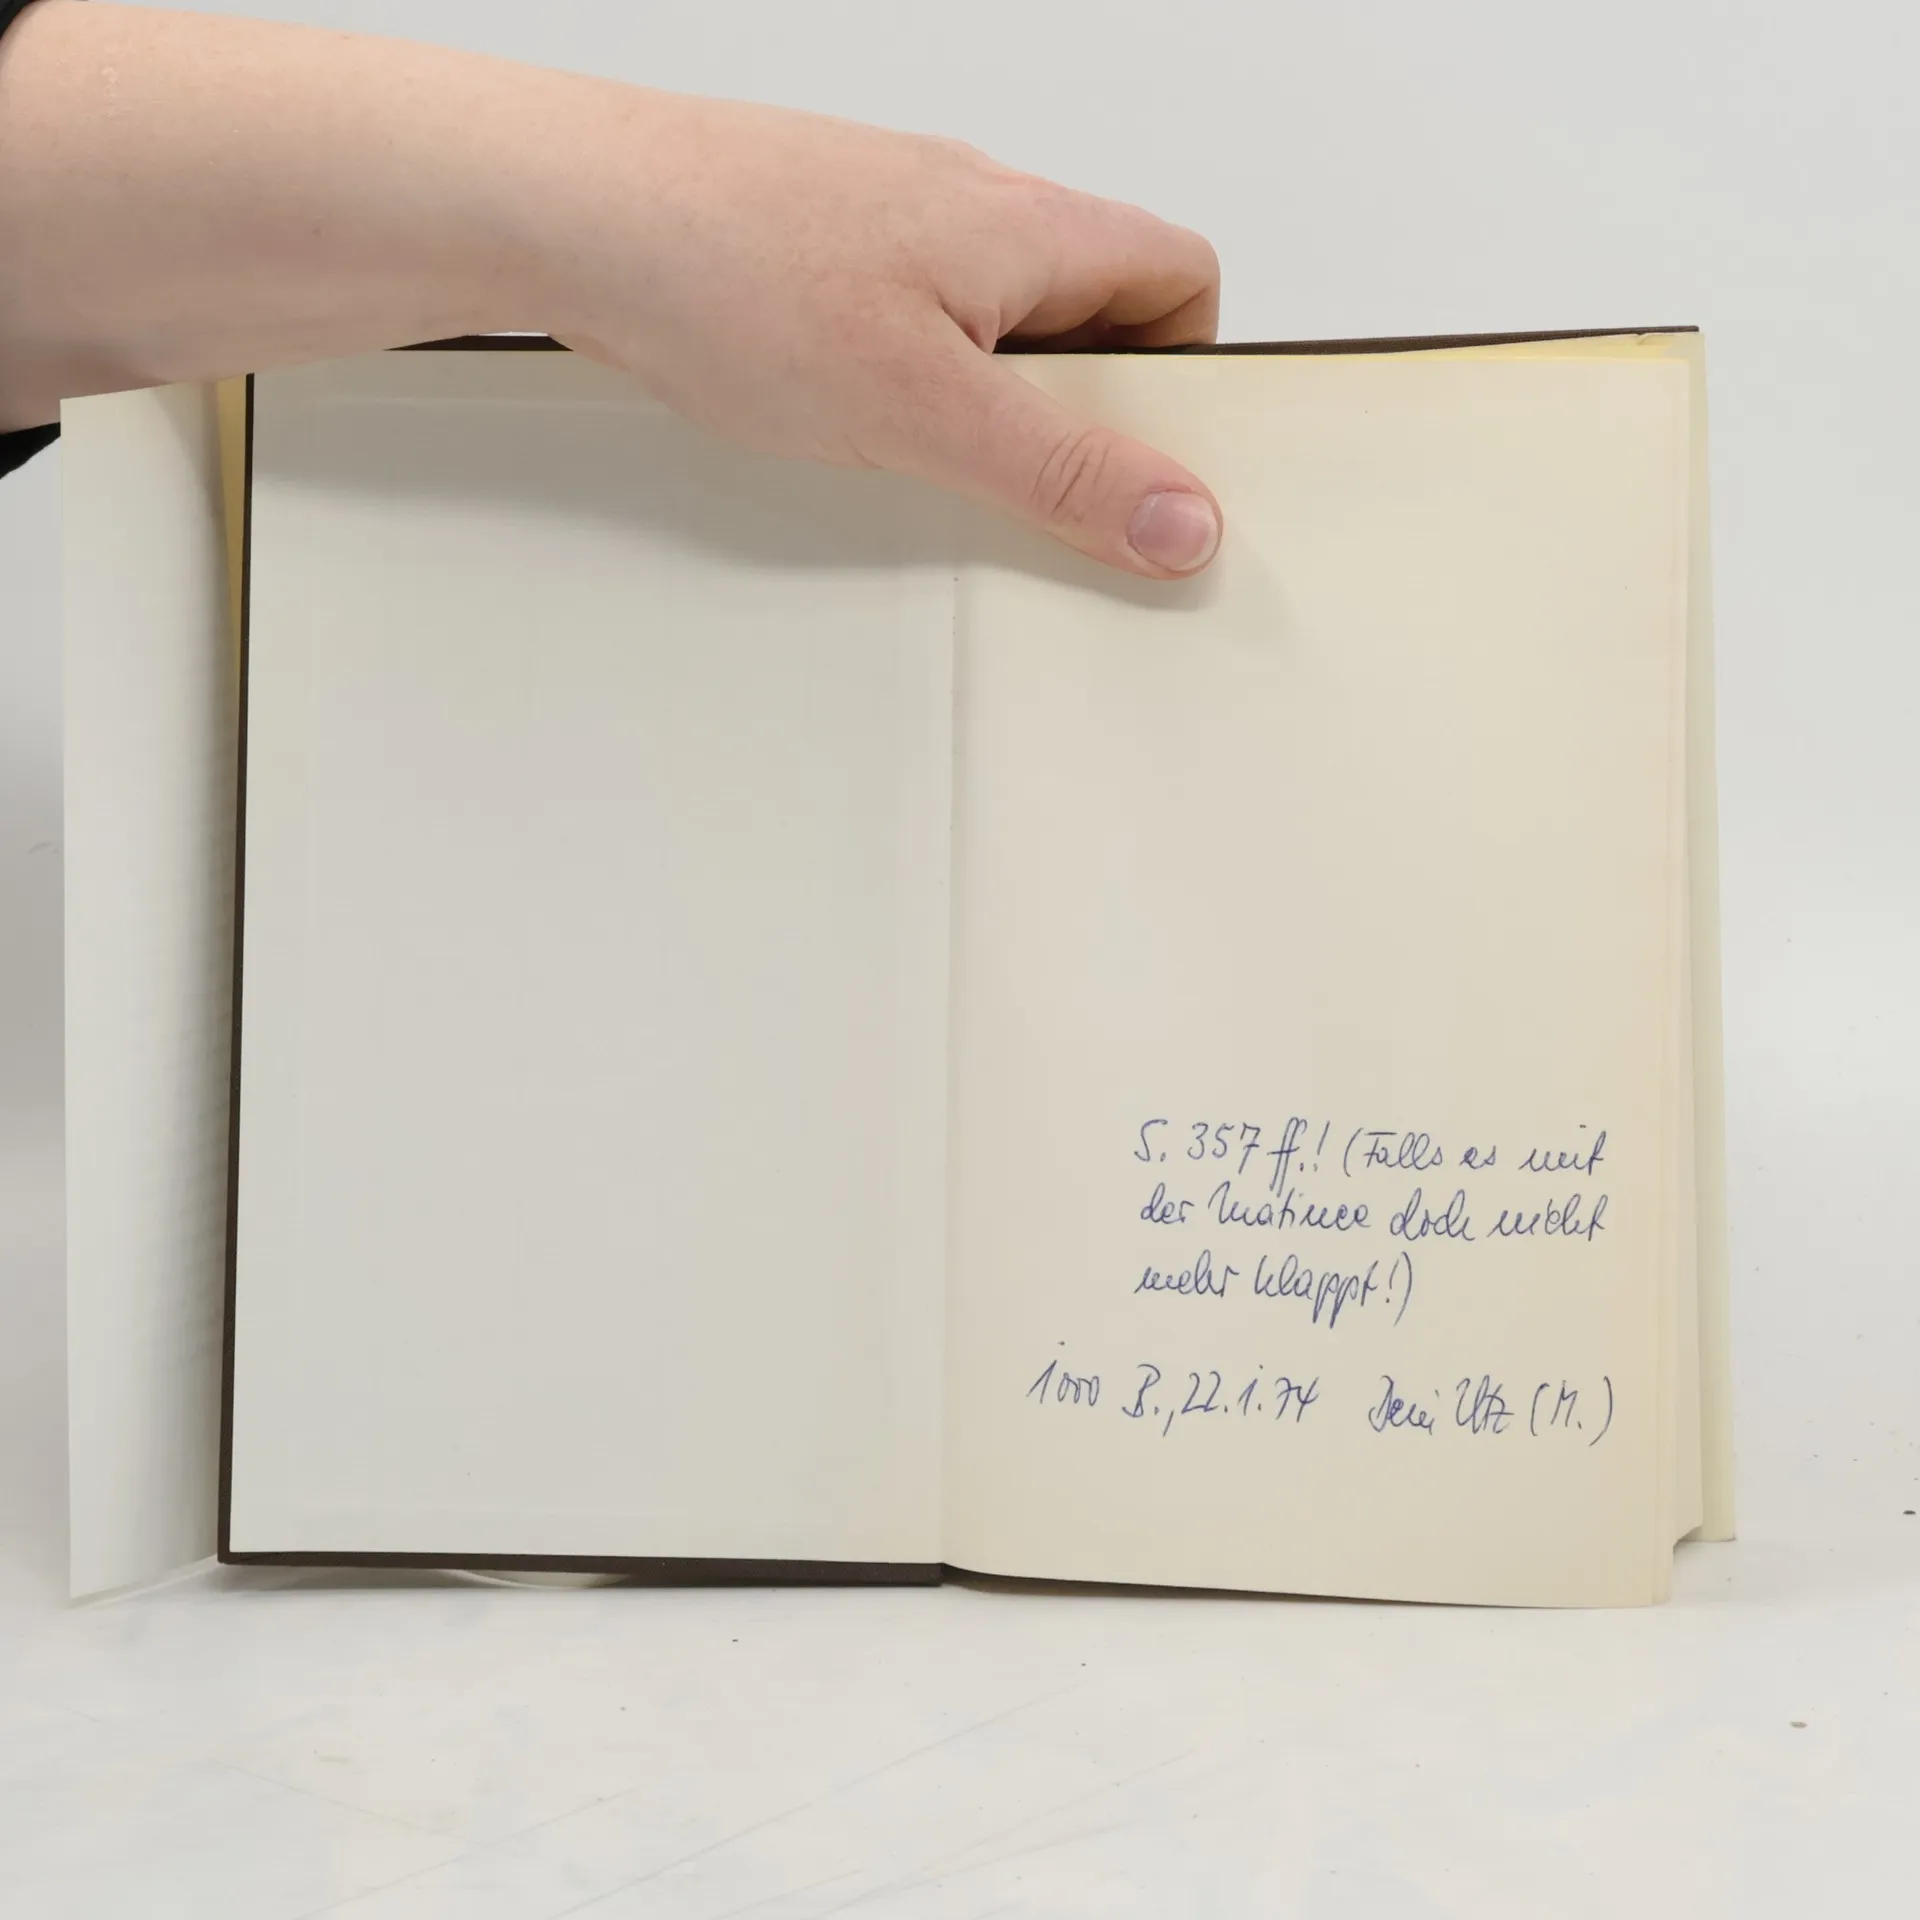 S. 357 ff.! (Falls es mit
der Matinee doch nicht
mehr klappt!)
1000 B., 22.1.74 Dein Utz (M.)